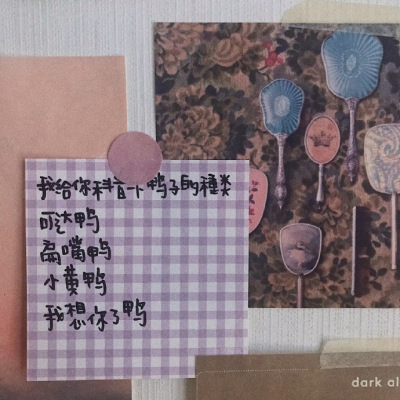 我给你科普一下鸭子的種類
可达鸭
扁嘴鸭
小黄鸭
我想你了鸭
dark al